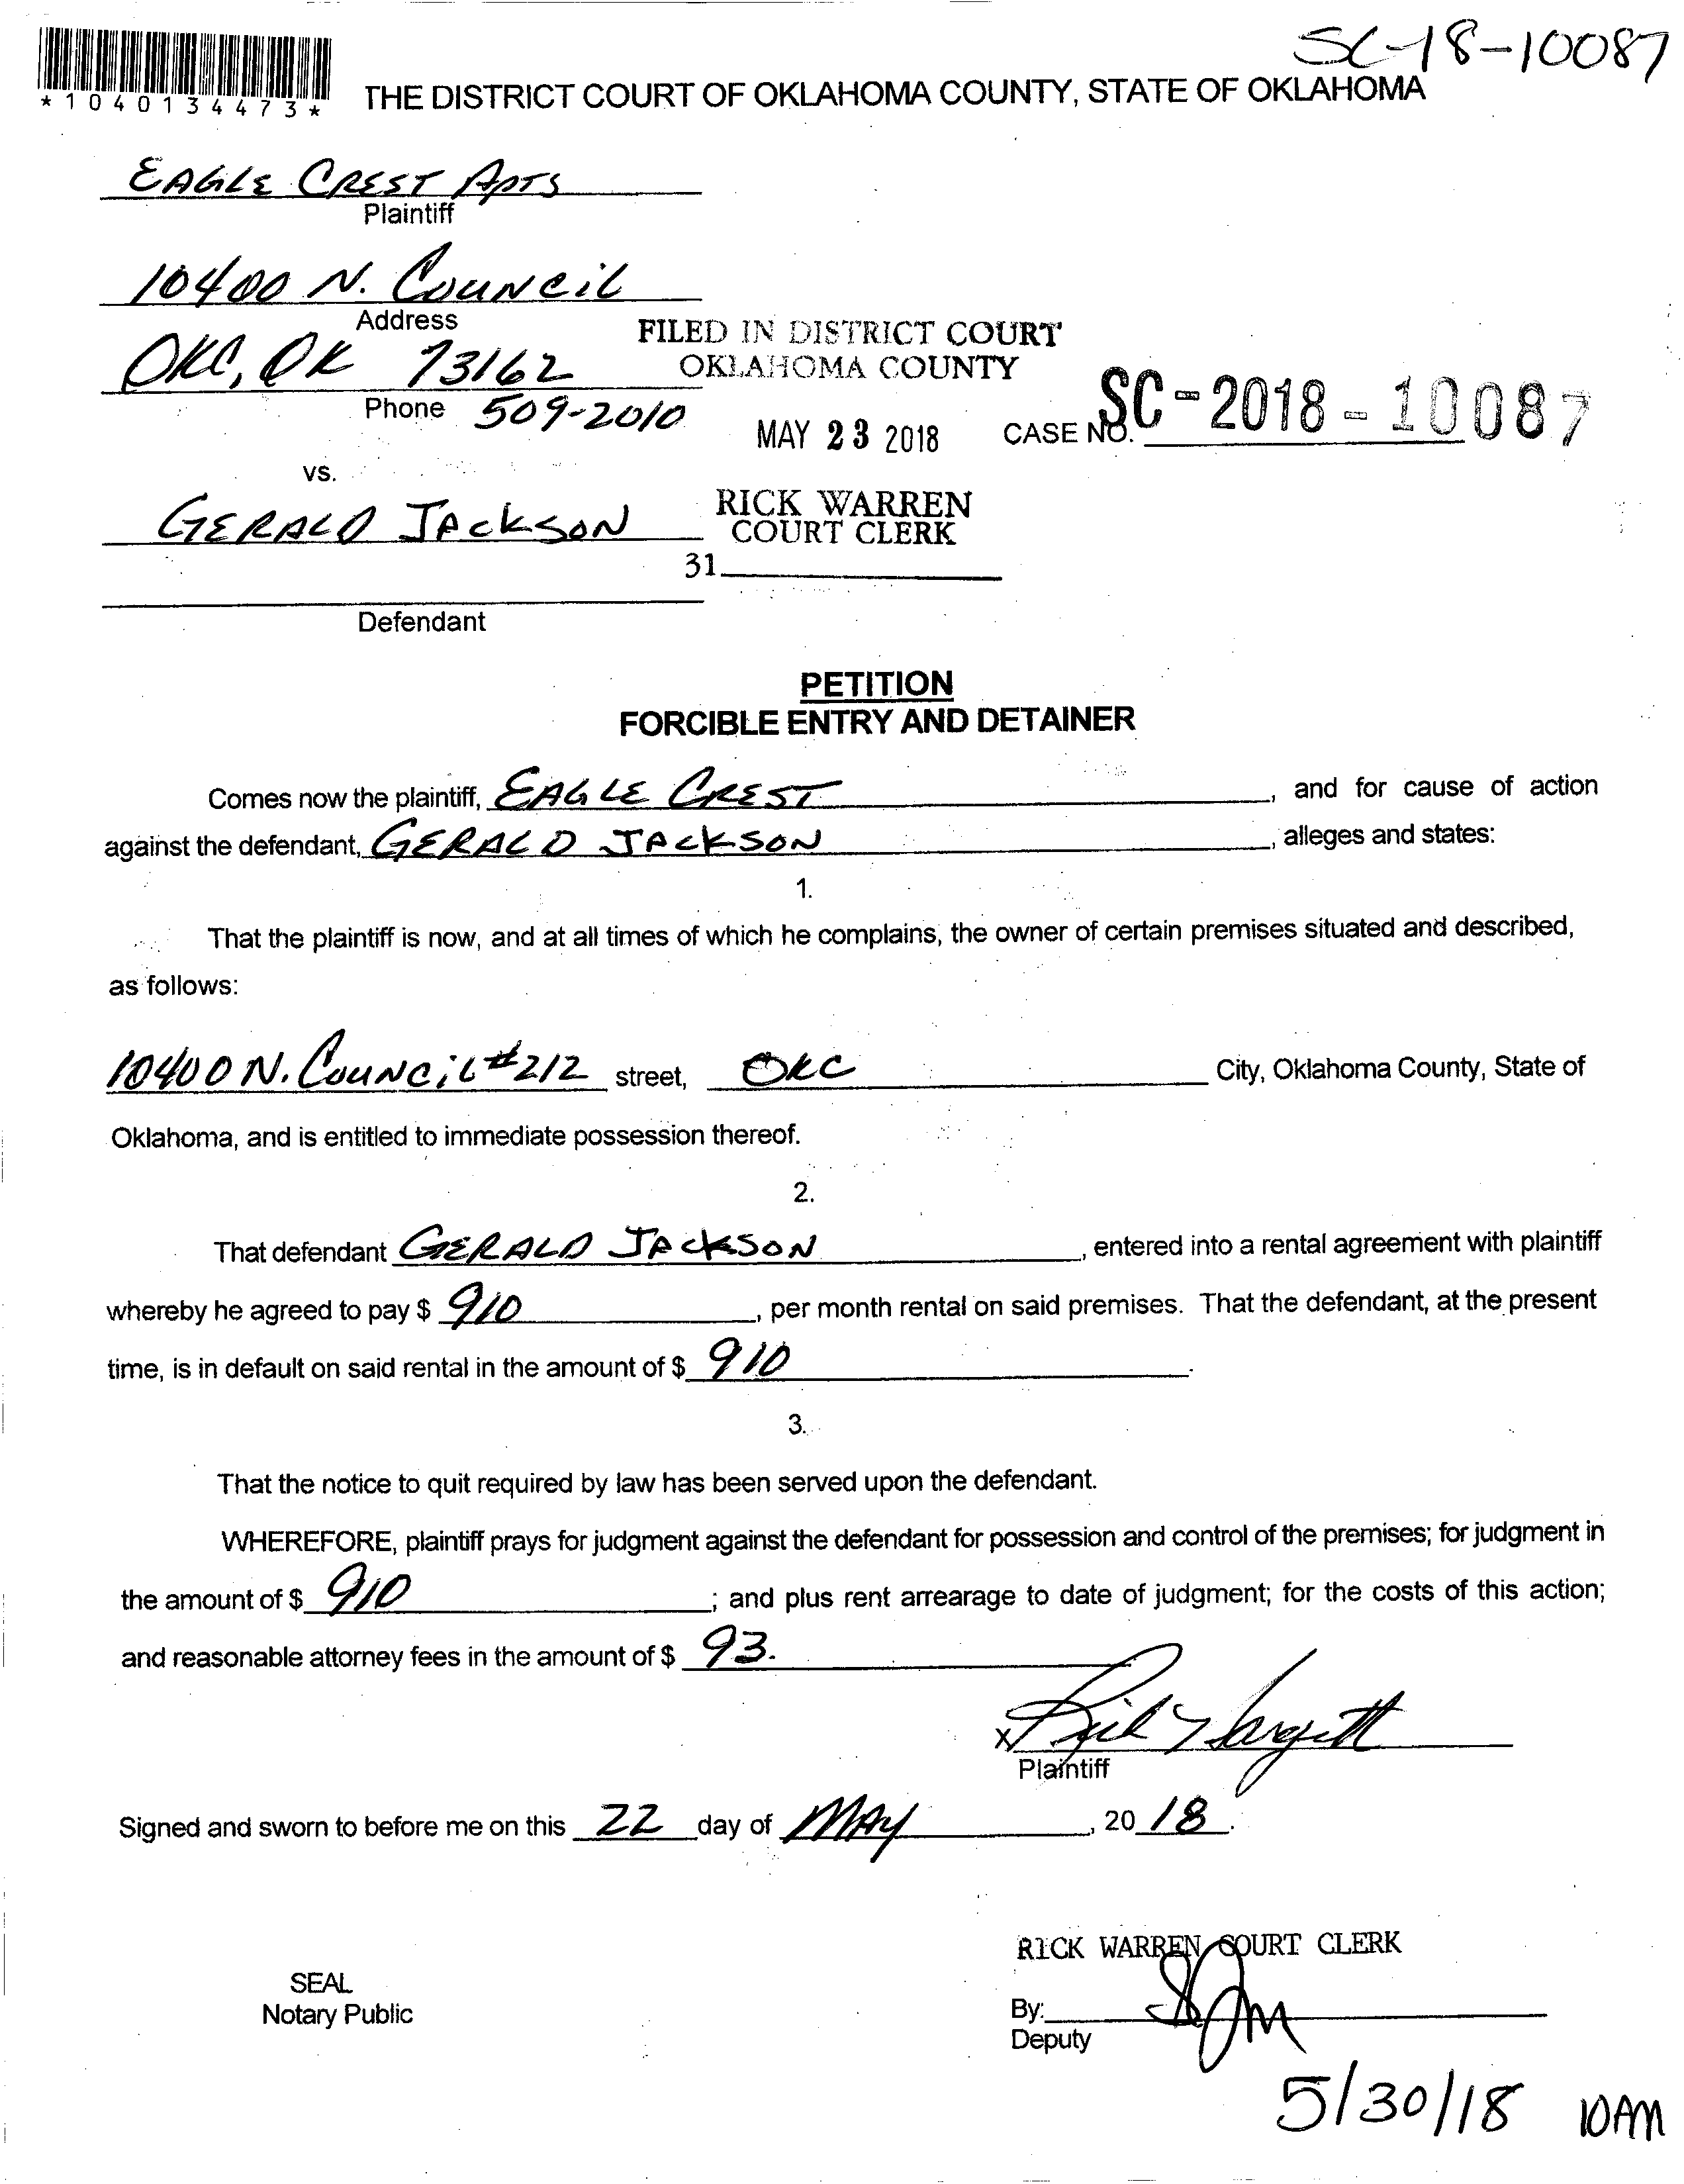 SC-18-10087
*1040134473*
THE DISTRICT COURT OF OKLAHOMA COUNTY, STATE OF OKLAHOMA
EAGLE CREST APTS
Plaintiff
10400 N. COUNCIL
Address
OKC, OK 73162
Phone 509-2010
FILED IN DISTRICT COURT
OKLAHOMA COUNTY
MAY 23 2018
CASE NO. SC-2018-10087
vs.
GERALD JACKSON
RICK WARREN
COURT CLERK
31
Defendant
PETITION
FORCIBLE ENTRY AND DETAINER
Comes now the plaintiff, EAGLE CREST, and for cause of action
against the defendant, GERALD JACKSON, alleges and states:
1.
That the plaintiff is now, and at all times of which he complains, the owner of certain premises situated and described,
as follows:
10400 N. COUNCIL #212 street, OKC City, Oklahoma County, State of
Oklahoma, and is entitled to immediate possession thereof.
2.
That defendant GERALD JACKSON, entered into a rental agreement with plaintiff
whereby he agreed to pay $ 910, per month rental on said premises. That the defendant, at the present
time, is in default on said rental in the amount of $ 910.
3.
That the notice to quit required by law has been served upon the defendant.
WHEREFORE, plaintiff prays for judgment against the defendant for possession and control of the premises; for judgment in
the amount of $ 910; and plus rent arrearage to date of judgment; for the costs of this action;
and reasonable attorney fees in the amount of $ 93.
x
Plaintiff
Signed and sworn to before me on this 22 day of MAY, 20 18.
RICK WARREN COURT CLERK
SEAL
Notary Public
By:
Deputy
5/30/18 10AM